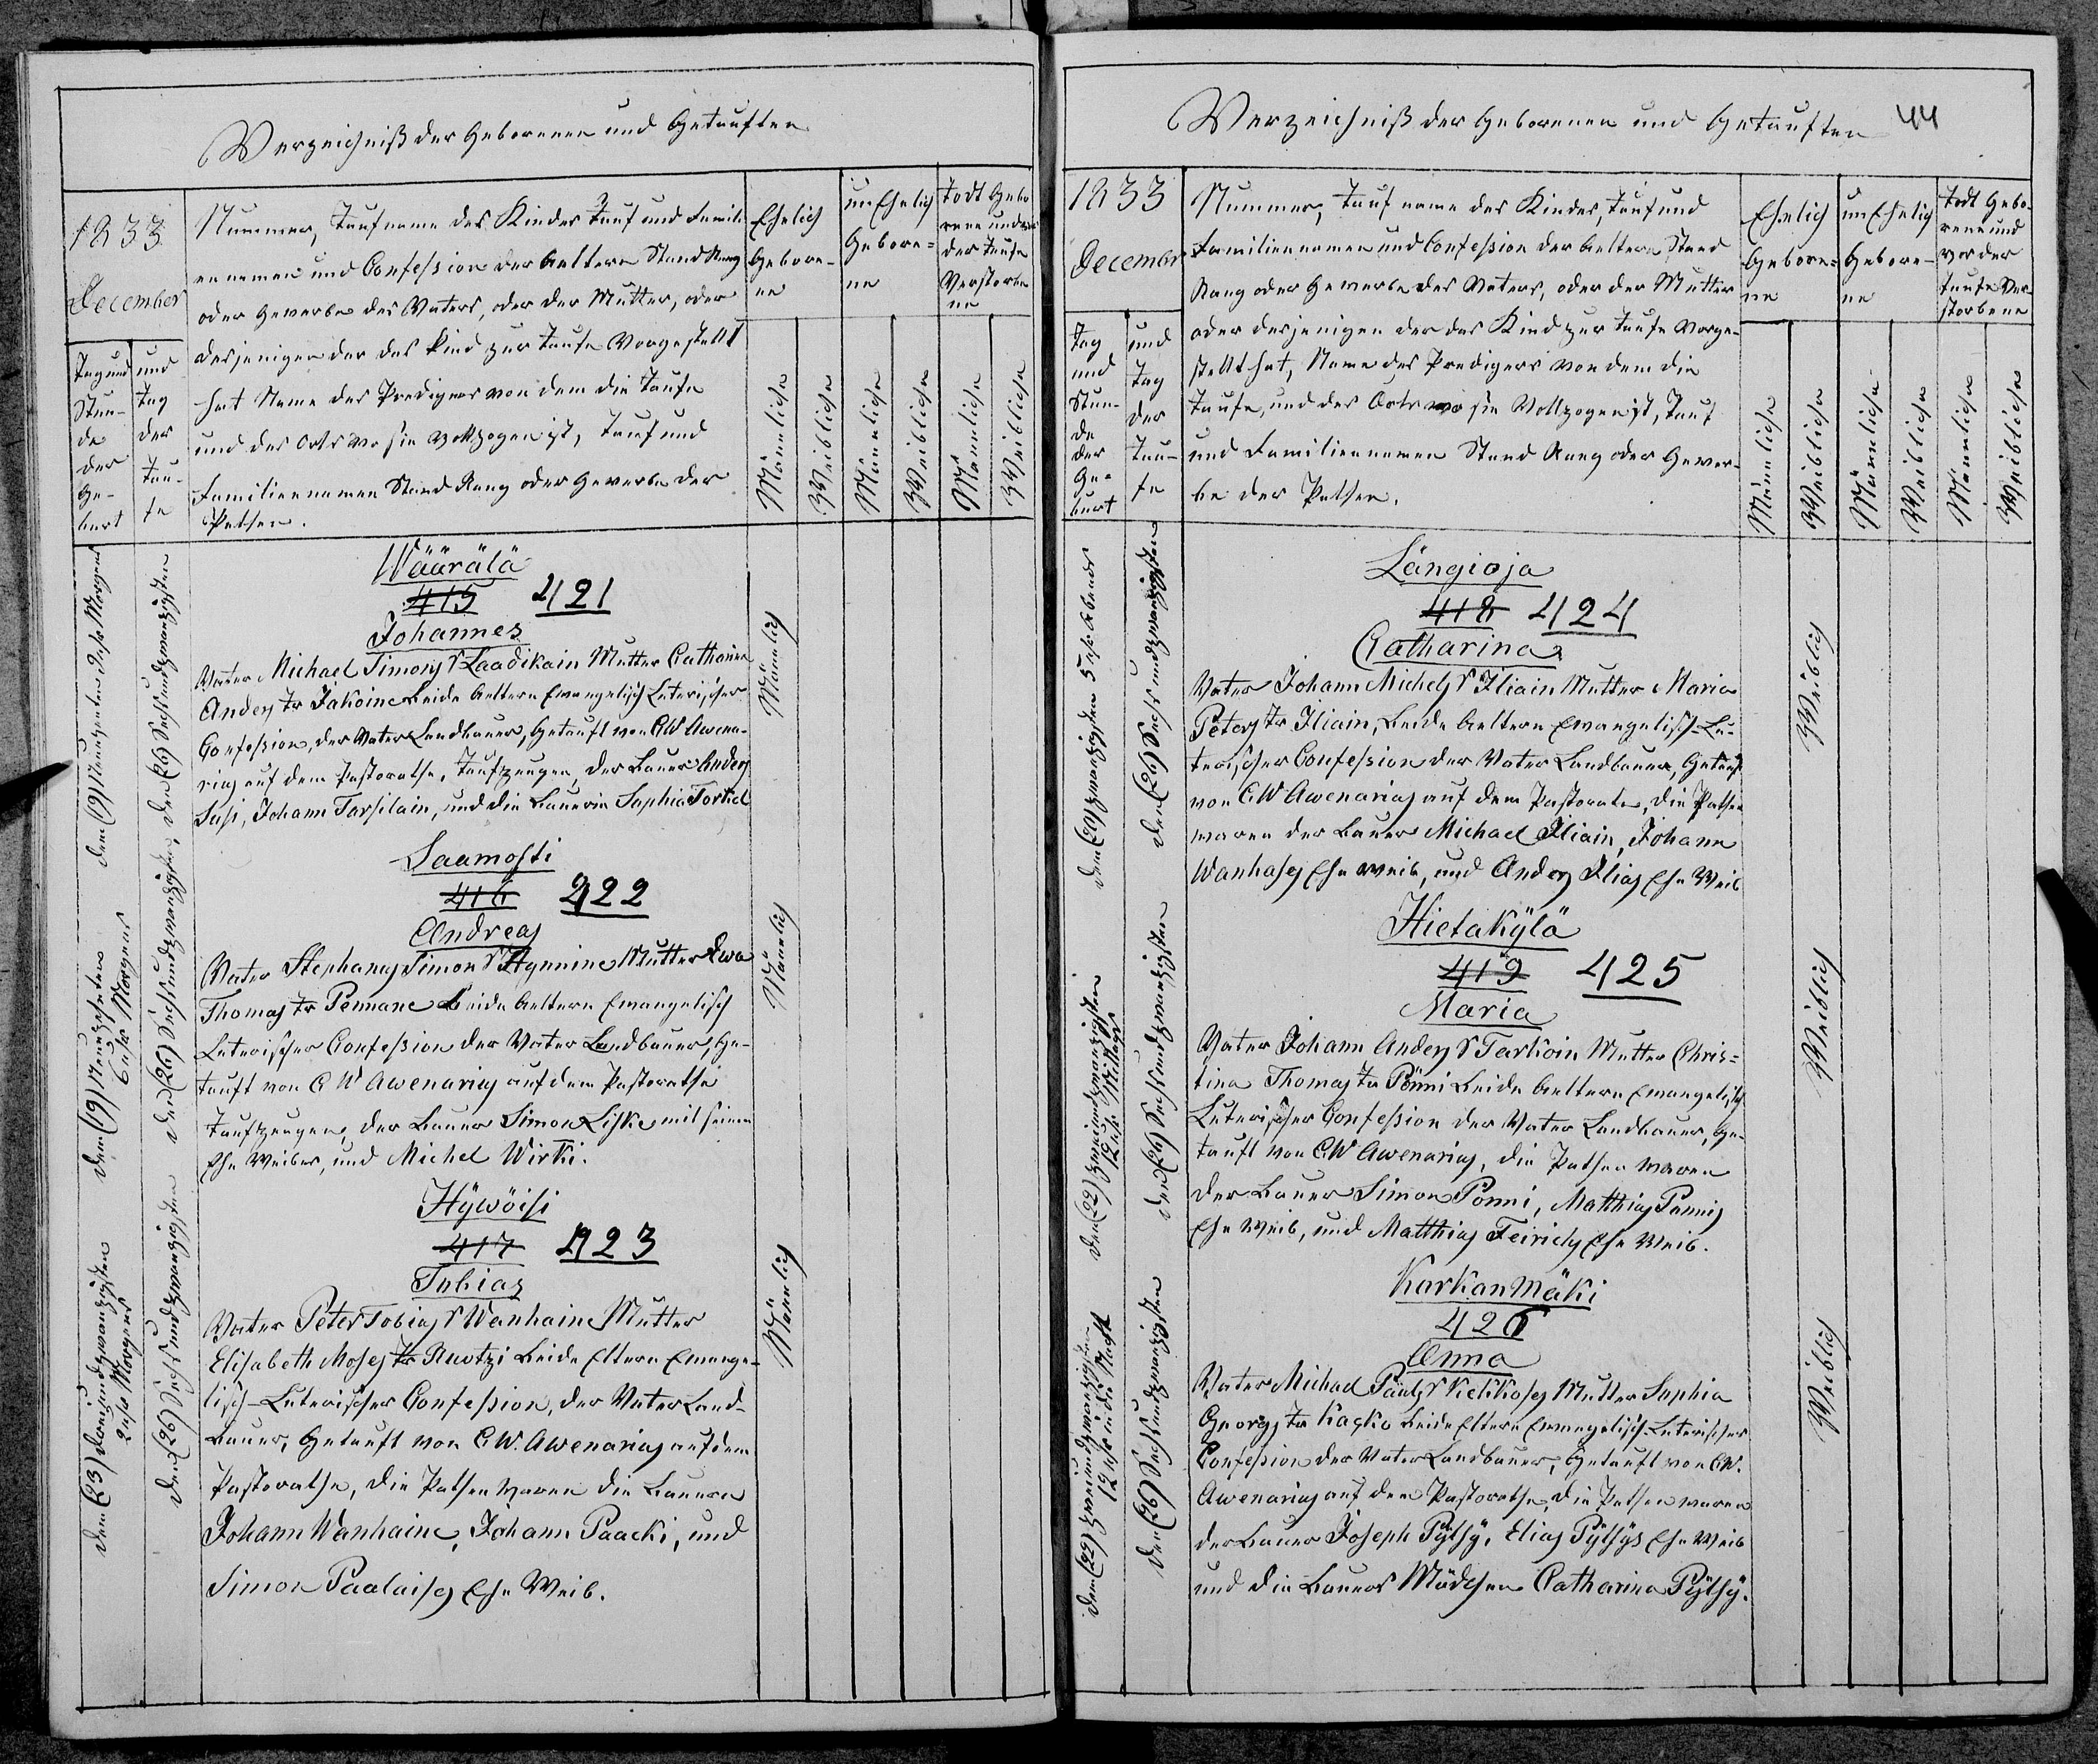 Verzeichniß der Geborenen und Getauften
1833
December
Tag und
Stun-
de
der
Ge-
burt
und
Tag
der
Tau-
fe
Nummer, Taufname des Kindes Tauf und Famili
ennamen und Confession der Aeltern Stand Rang
oder Gewerbe des Vaters, oder der Mutter, oder
desjenigen der das Kind zur Taufe Vorgestellt
hat Name des Predigers von dem die Taufe
und des Orts wo sie vollzogen ist, Tauf und
Familiennamen Stand Rang oder Gewerbe der
Pathen.
Ehelich
Gebore-
ne
un Ehelich
Gebore-
ne
Todt Gebo
rene und vor
der Taufe
Verstorbe
ne
Männliche
Weibliche
Männliche
Weibliche
Männliche
Weibliche
den (19) Neunzehnten Morgens
den (26) Sechsundzwanzigsten
Wäärälä
415 421
Johannes
Männlich
Vater Michael Simons S Laadikain Mutter Catharina
Anders tr Jakoine Beide Aeltern Evangelisch Luterischer
Confession, der Vater Landbauer, Getauft von CW Awena-
rius auf dem Pastorathe, Taufzeugen der Bauer Anders
Susi, Johann Tarsilain, und die Bäuerin Sophia Torkel
den (19) Neunzehnten
6 Uhr Morgens
den (26) Sechsundzwanzigsten
Saamosti
416 422
Andreas
Männlich
Vater Stephanus Simon S Hynnine Mutter Ewa
Thomas tr Pennane Beide Aeltern Evangelisch
Luterischer Confession der Vater Landbauer, Ge-
tauft von C W Awenarius auf dem Pastorathe
Taufzeugen, der Bauer Simon Liske mit seinem
Ehe Weibe, und Michel Wirki.
den (23) Dreiundzwanzigsten
2 Uhr Morgens
den (26) Sechsundzwanzigsten
Hÿwöisi
417 423
Tobias
Männlich
Vater Peter Tobias S Wanhaine Mutter
Elisabeth Moses tr Ruotzi Beide Eltern Evange-
lisch-Luterischer Confession, der Vater Land-
Bauer, Getauft von C W. Awenarius auf dem
Pastorathe, die Pathen waren die Bauern
Johann Wanhaine, Johann Paacki, und
Simon Paalaises Ehe Weib.
Verzeichniß der Geborenen und Getauften
44
1833
December
Tag
und
Stun-
de
der
Ge-
burt
und
Tag
der
Tau-
fe
Nummer, Taufname des Kindes, Tauf und
Familiennamen und Confession der Aeltern Stand
Rang oder Gewerbe des Vaters, oder der Mutter
oder desjenigen der das Kind zur Taufe Vorge-
stellt hat, Name des Predigers von dem die
Taufe, und des Orts wo sie Vollzogen ist, Tauf
und Familiennamen Stand Rang oder Gewer-
be der Pathen.
Ehelich
Gebore-
ne
un Ehelich
Gebore-
ne
Todt Gebo-
rene und
vor der
Taufe Ver-
storbene
Männliche
Weibliche
Männliche
Weibliche
Männliche
Weibliche
den (20) zwanzigsten 5 Uhr Abends
den (26) Sechsundzwanzigsten
Längioja
418 424
Catharina
Weiblich
Vater Johann Michels S Iliain Mutter Maria
Peters tr Iliain, Beide Aeltern Evangelisch-Lu-
terischer Confession der Vater Landbauer, Getauft
von C W Awenarius auf dem Pastorate, die Pathen
waren der Bauer Michael Iliain, Johann
Wanhases Ehe Weib, und Anders Ilias Ehe Weib
den (22) zweiundzwanzigsten
12 Uhr Mittags
den (26) Sechsundzwanzigsten
Hietakÿlä
419 425
Maria
Weiblich
Vater Johann Anders S Tarkoin Mutter Chris-
tina Thomas tr Pönni Beide Aeltern Evangelisch
Luterischer Confession der Vater Landbauer, Ge-
tauft von C W Awenarius, die Pathen waren
der Bauer Simon Pönni, Matthias Pannis
Ehe Weib, und Matthias Feirichs Ehe Weib.
den (22) zweiundzwanzigsten
12 Uhr in die Nacht
den (26) Sechsundzwanzigsten
Karkanmäki
426
Anna
Weiblich
Vater Michael Pauls S Kekkoses Mutter Sophia
Georgs tr Kaçko Beide Eltern Evangelisch-Luterischer
Confession der Vater Landbauer, Getauft von C W.
Awenarius auf dem Pastorathe, die Pathen waren
der Bauer Joseph Pÿthÿ, Elias Pÿthÿs Ehe Weib
und die Bauers Mädchen Catharina Pÿthÿ.